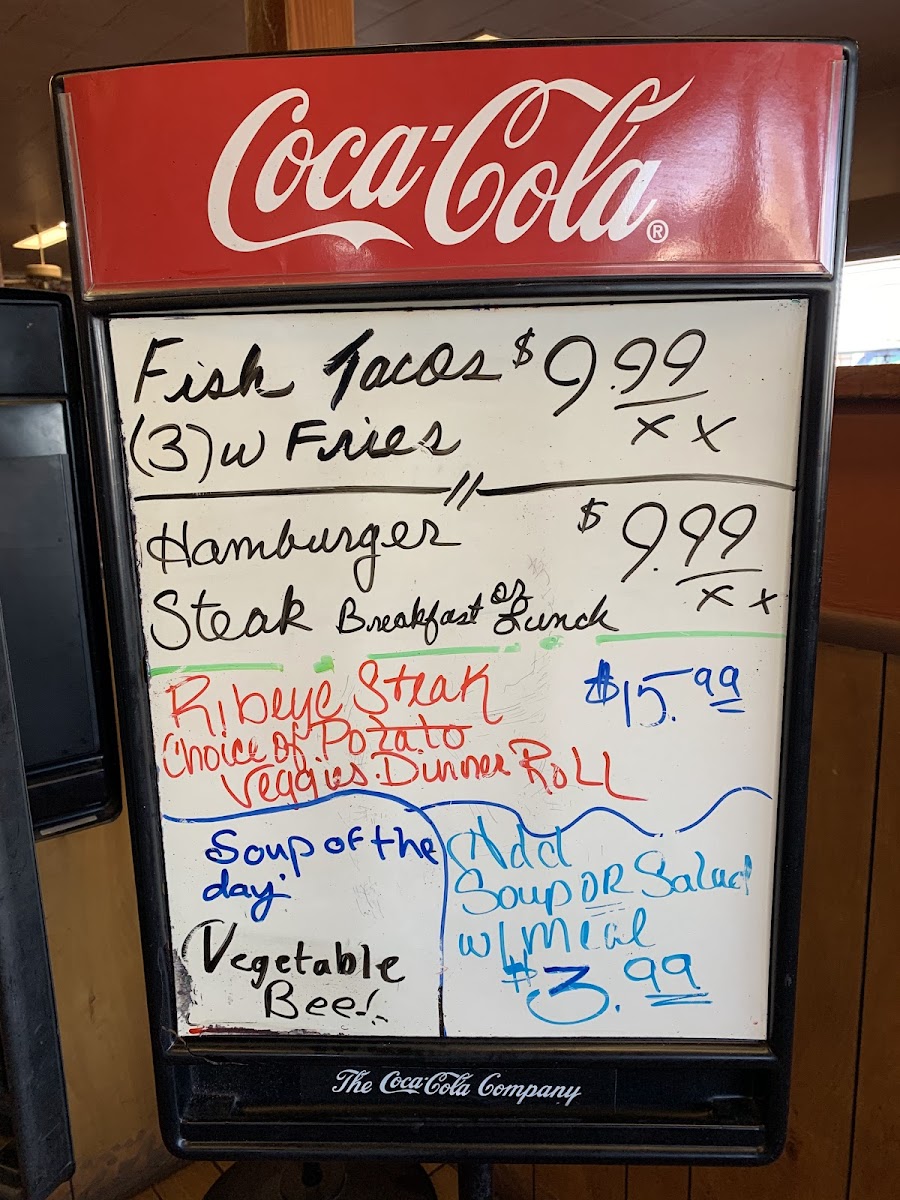 Coca-Cola®
Fish Tacos $9.99
xx
(3) w Fries
Hamburger $9.99
xx
Steak Breakfast or Lunch
Ribeye Steak $15.99
Choice of Potato
Veggies. Dinner Roll
Soup of the
day.
Vegetable
Beef.
Add
Soup OR Salad
w/Meal
$3.99
The Coca-Cola Company